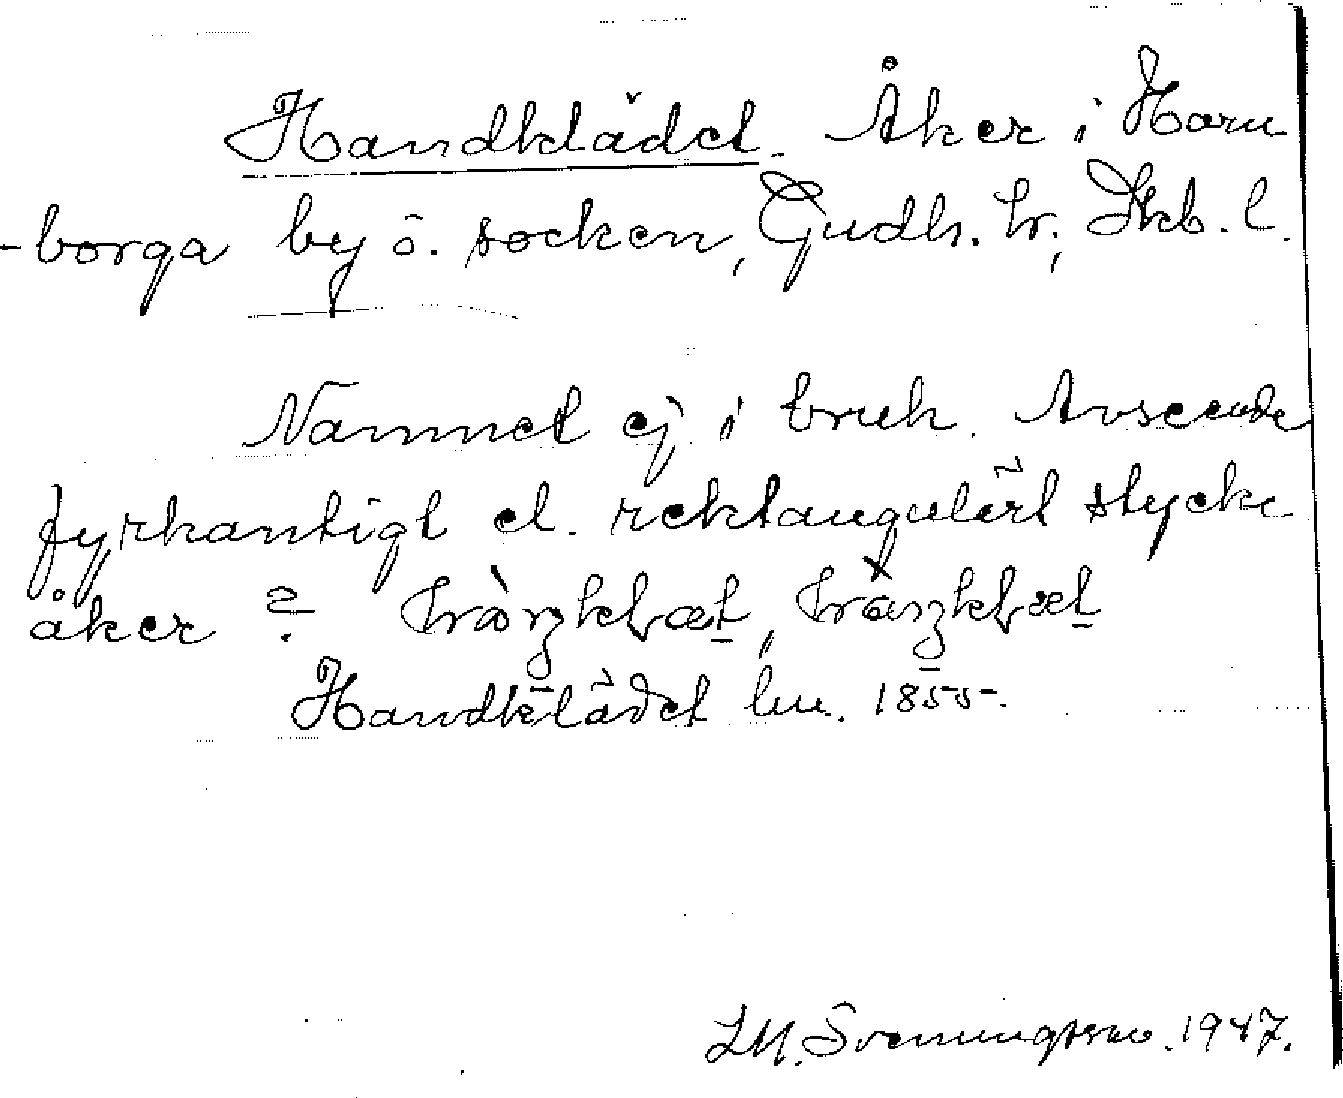 Handklädet. Åker i Horn
-borga by o. socken, Gudh. hr, Skb. l.
Namnet ej i bruk. Avseende
fyrkantigt el. rektangulärt stycke
åker ?
Handklädet lm. 1855.
LM. Svenungsson. 1947.